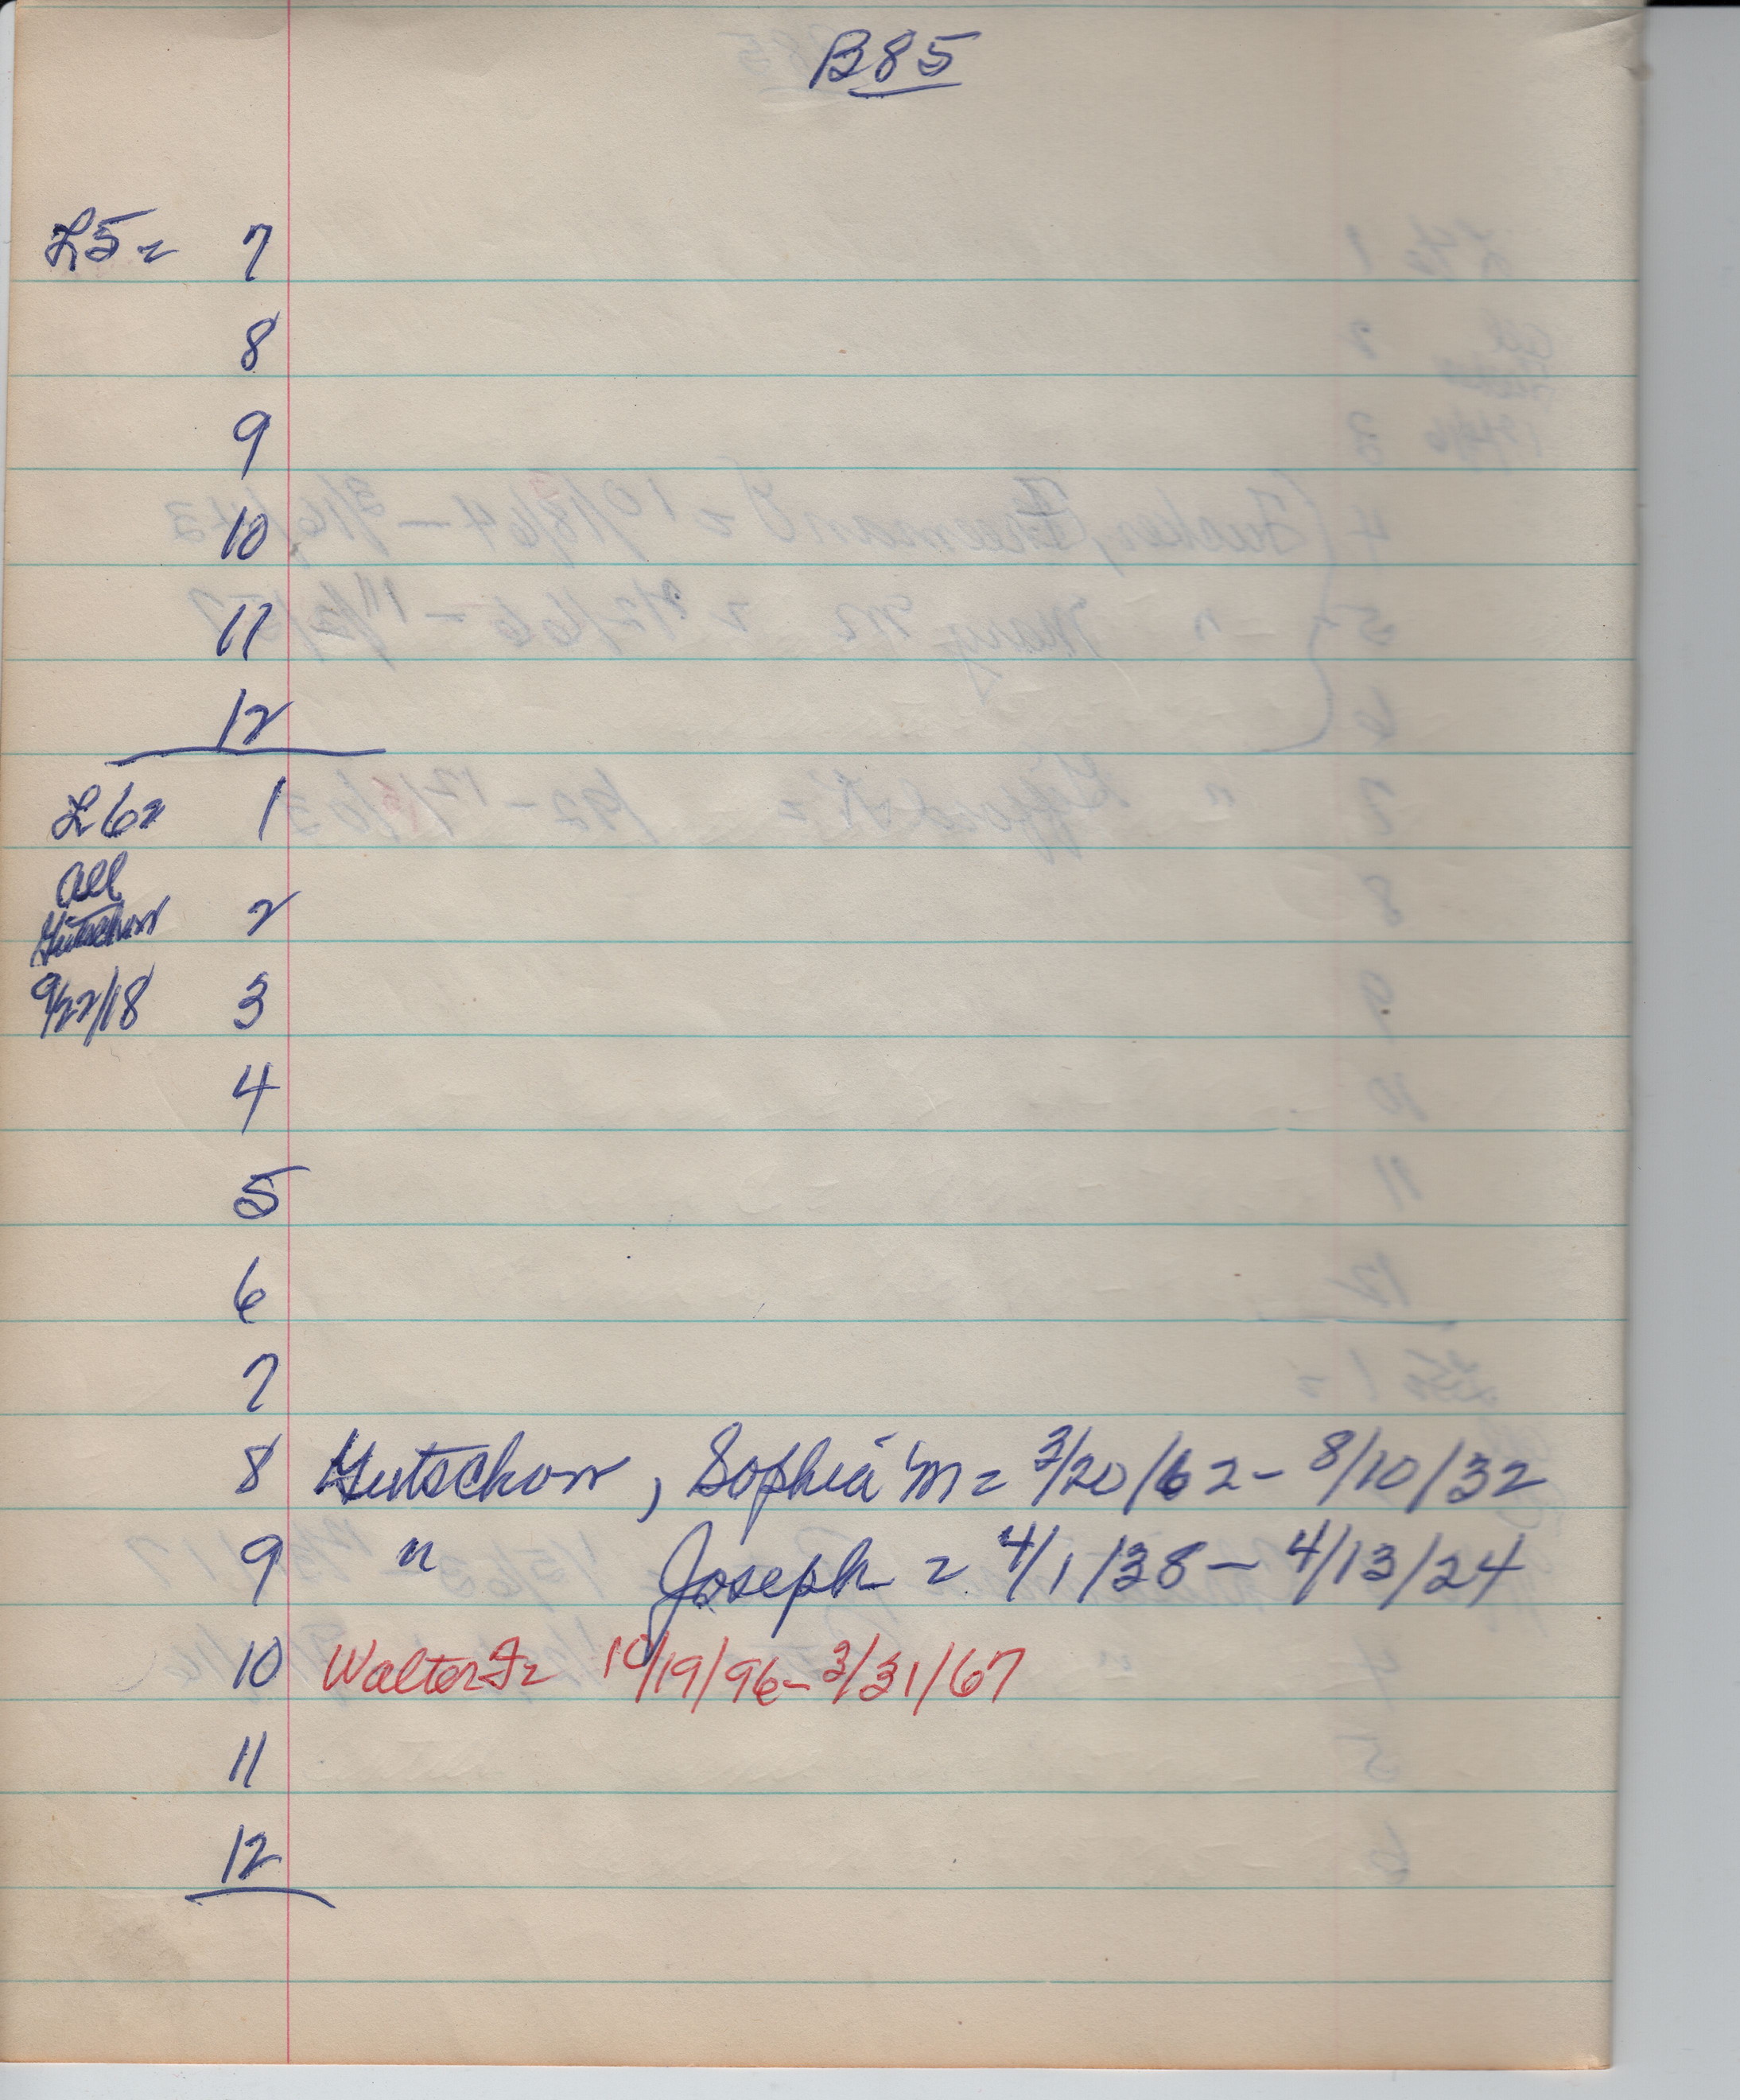 B85
L5 = 7
8
9
10
11
12
L6 = 1
all
Gutschow 2
9/22/18 3
4
5
6
7
8 Gutschow, Sophia M = 3/20/62 - 8/10/32
9 " Joseph = 4/1/38 - 4/13/24
10 Walter F = 10/19/96 - 3/31/67
11
12